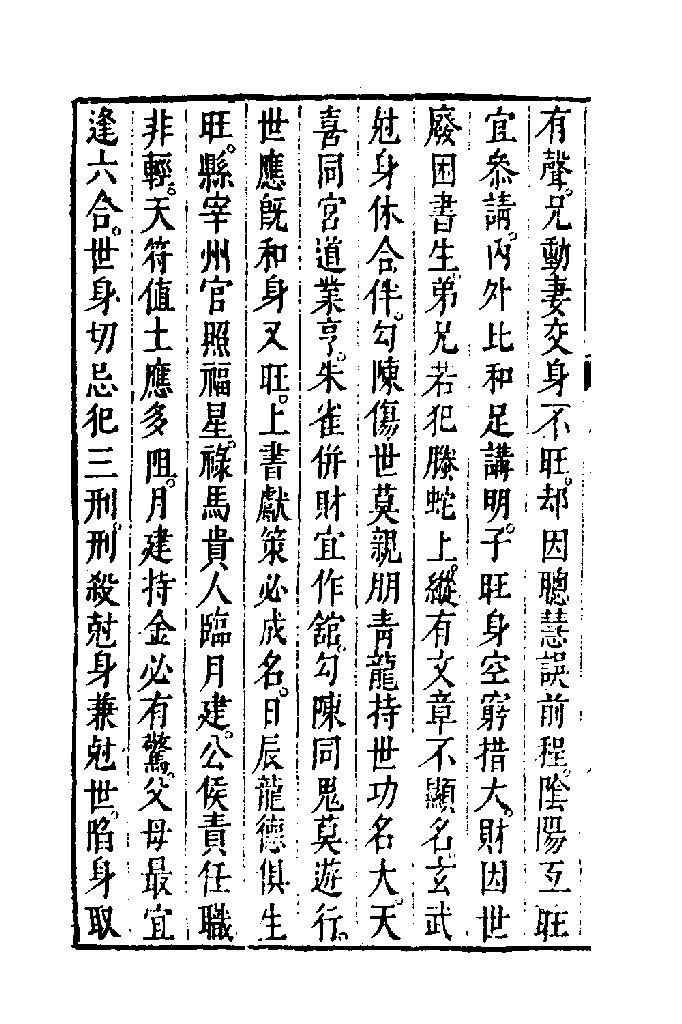 有聲。兄動妻交身不旺。却因聰慧誤前程。陰陽互旺
宜叅請。內外比和足講明。子旺身空窮措大。財因世
廢困書生。弟兄若犯螣蛇上。縱有文章不顯名。玄武
尅身休合伴。勾陳傷世莫親朋。青龍持世功名大。天
喜同宮道業亨。朱雀併財宜作舘。勾陳同鬼莫遊行。
世應既和身又旺。上書獻策必成名。日辰龍德俱生
旺。縣宰州官照福星。祿馬貴人臨月建。公侯責任職
非輕。天符值土應多阻。月建持金必有驚。父母最宜
逢六合。世身切忌犯三刑。刑殺尅身兼尅世。陷身取